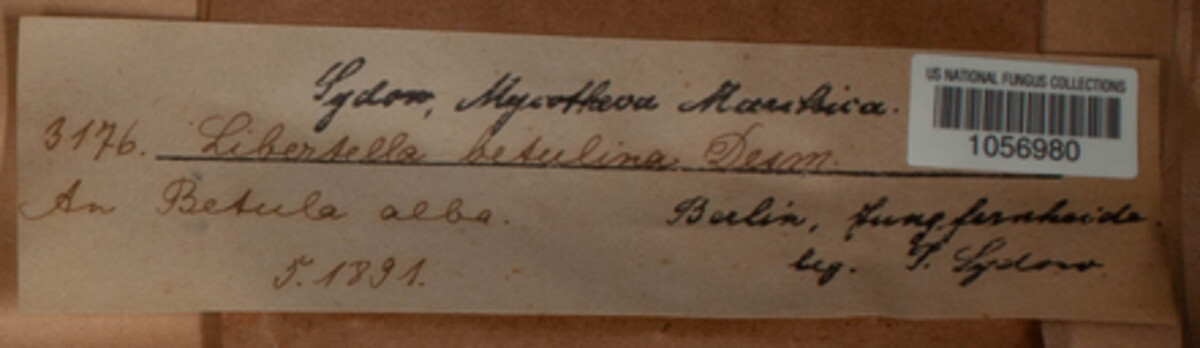 Sydow, Mycotheca Marchica.
US NATIONAL FUNGUS COLLECTIONS
1056980
3176. Libertella betulina Desm.
An Betula alba.
Berlin, Jungfernheide.
5.1891.
leg. P. Sydow